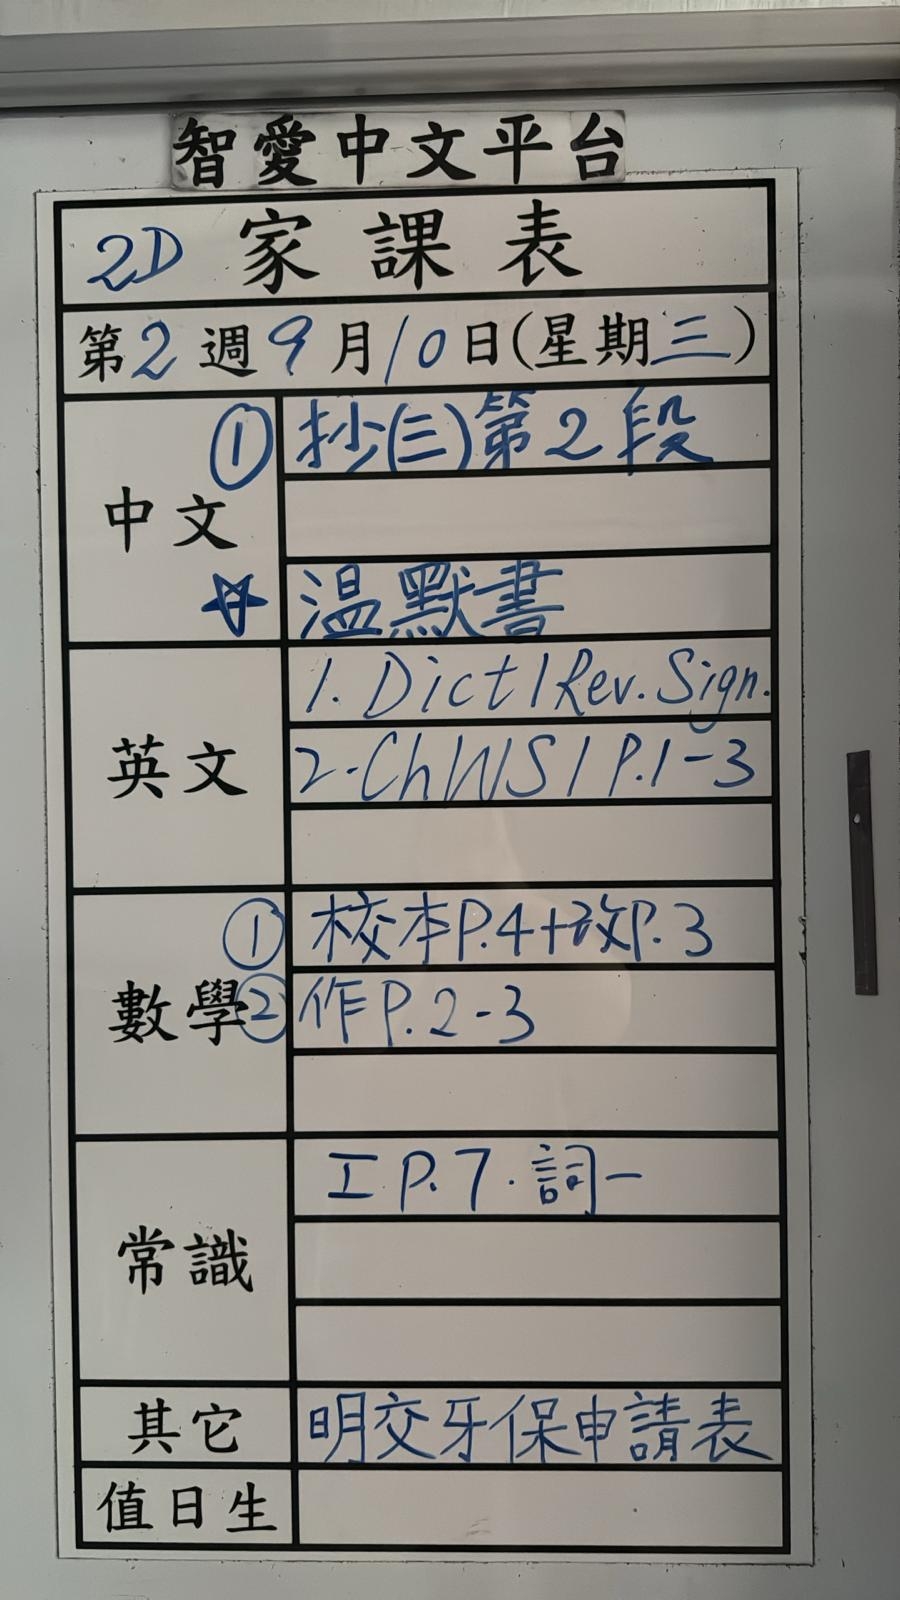 智愛中文平台
2D 家課表
第2週9月10日(星期三)
中文
① 抄(三)第2段
☆ 温默書
英文
1. Dict1Rev. Sign.
2. ChWS1 P.1-3
數學
① 校本P.4+改P.3
② 作P.2-3
常識
工P.7.詞一
其它
明交牙保申請表
值日生